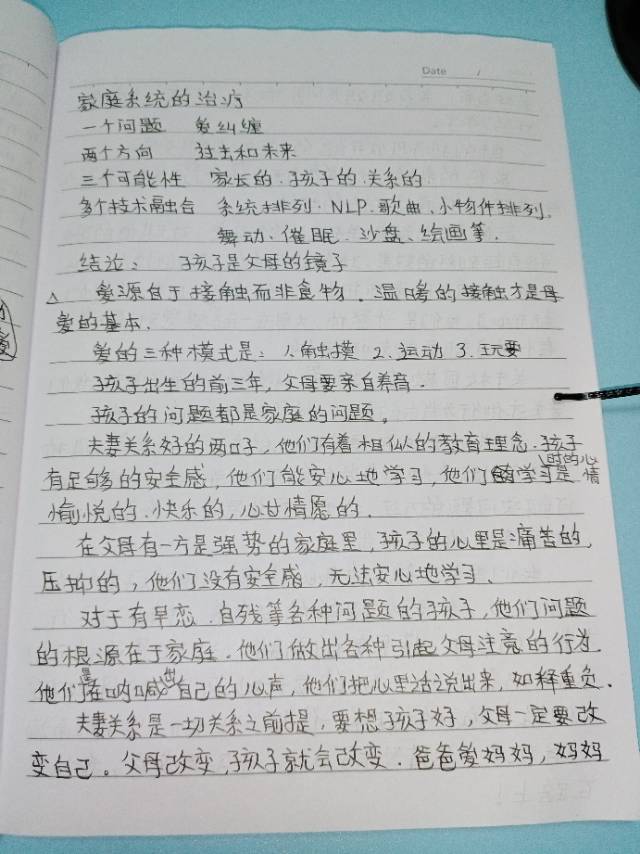 Date /
家庭系统的治疗
一个问题 爱纠缠
两个方向 过去和未来
三个可能性 家长的.孩子的.关系的.
多个技术融合 系统排列.NLP.歌曲、小物件排列.
舞动.催眠.沙盘、绘画等.
结论: 孩子是父母的镜子
△ 爱源自于接触而非食物.温暖的接触才是母
爱的基本.
爱的三种模式是:1.触摸 2.运动 3.玩耍
孩子出生的前三年,父母要亲自养育.
孩子的问题都是家庭的问题。
夫妻关系好的两口子,他们有着相似的教育理念.孩子
有足够的安全感,他们能安心地学习,他们学习时的心情是
愉悦的.快乐的,心甘情愿的.
在父母有一方是强势的家庭里,孩子的心里是痛苦的,
压抑的,他们没有安全感,无法安心地学习、
对于有早恋.自残等各种问题的孩子,他们问题
的根源在于家庭.他们做出各种引起父母注意的行为.
他们是在呐喊出自己的心声,他们把心里话说出来,如释重负.
夫妻关系是一切关系之前提,要想孩子好,父母一定要改
变自己。父母改变,孩子就会改变.爸爸爱妈妈,妈妈